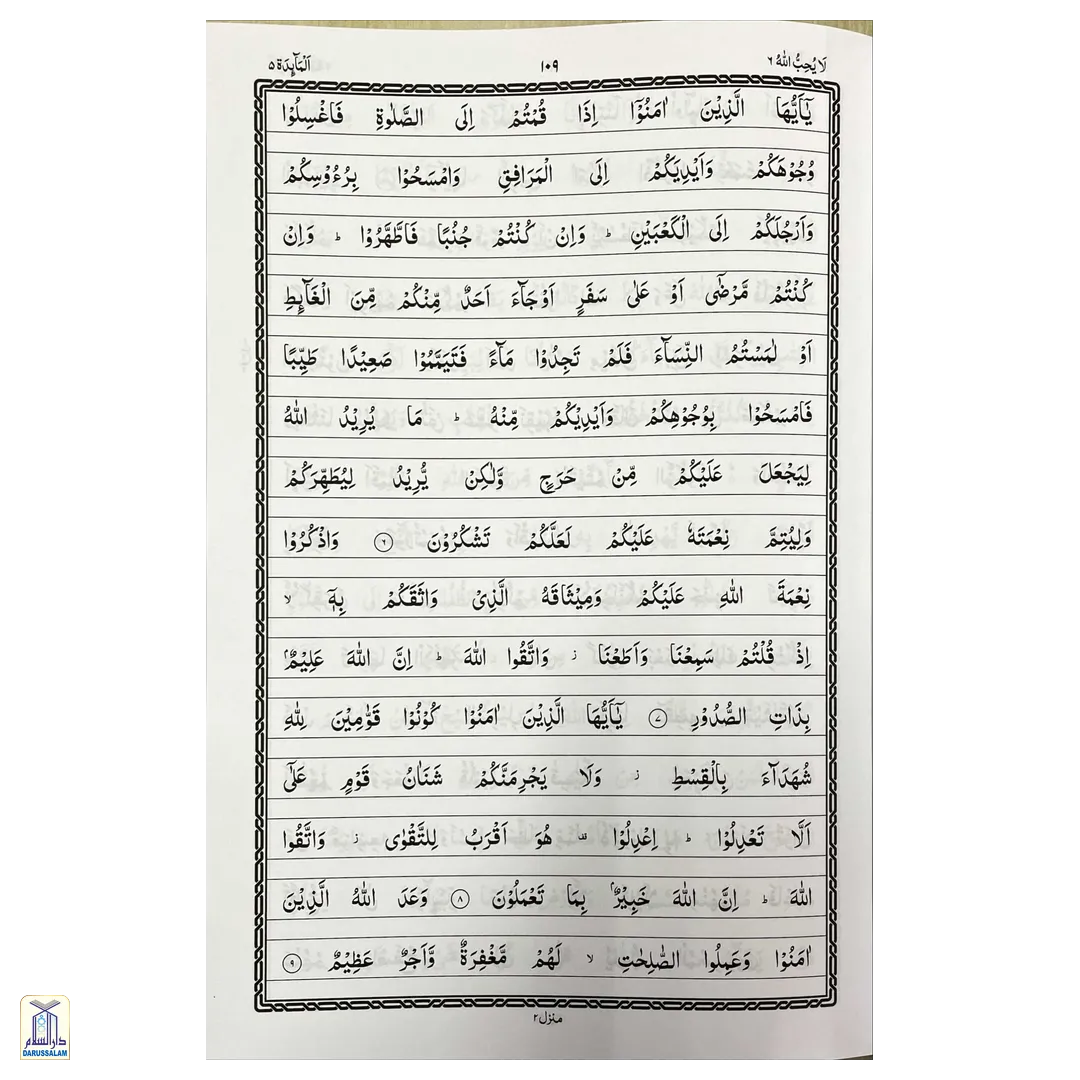 لَا يُحِبُّ اللّٰهُ ٦ ١٠٩ اَلْمَآئِدَة ٥
يٰٓاَيُّهَا الَّذِيْنَ اٰمَنُوْٓا اِذَا قُمْتُمْ اِلَى الصَّلٰوةِ فَاغْسِلُوْا
وُجُوْهَكُمْ وَاَيْدِيَكُمْ اِلَى الْمَرَافِقِ وَامْسَحُوْا بِرُءُوْسِكُمْ
وَاَرْجُلَكُمْ اِلَى الْكَعْبَيْنِ ؕ وَاِنْ كُنْتُمْ جُنُبًا فَاطَّهَّرُوْا ؕ وَاِنْ
كُنْتُمْ مَّرْضٰٓى اَوْ عَلٰى سَفَرٍ اَوْ جَآءَ اَحَدٌ مِّنْكُمْ مِّنَ الْغَآئِطِ
اَوْ لٰمَسْتُمُ النِّسَآءَ فَلَمْ تَجِدُوْا مَآءً فَتَيَمَّمُوْا صَعِيْدًا طَيِّبًا
فَامْسَحُوْا بِوُجُوْهِكُمْ وَاَيْدِيْكُمْ مِّنْهُ ؕ مَا يُرِيْدُ اللّٰهُ
لِيَجْعَلَ عَلَيْكُمْ مِّنْ حَرَجٍ وَّلٰكِنْ يُّرِيْدُ لِيُطَهِّرَكُمْ
وَلِيُتِمَّ نِعْمَتَهٗ عَلَيْكُمْ لَعَلَّكُمْ تَشْكُرُوْنَ ٦ وَاذْكُرُوْا
نِعْمَةَ اللّٰهِ عَلَيْكُمْ وَمِيْثَاقَهُ الَّذِيْ وَاثَقَكُمْ بِهٖٓ ۙ
اِذْ قُلْتُمْ سَمِعْنَا وَاَطَعْنَا ز وَاتَّقُوا اللّٰهَ ؕ اِنَّ اللّٰهَ عَلِيْمٌۢ
بِذَاتِ الصُّدُوْرِ ٧ يٰٓاَيُّهَا الَّذِيْنَ اٰمَنُوْا كُوْنُوْا قَوّٰمِيْنَ لِلّٰهِ
شُهَدَآءَ بِالْقِسْطِ ز وَلَا يَجْرِمَنَّكُمْ شَنَاٰنُ قَوْمٍ عَلٰٓى
اَلَّا تَعْدِلُوْا ؕ اِعْدِلُوْا ۫ هُوَ اَقْرَبُ لِلتَّقْوٰى ز وَاتَّقُوا
اللّٰهَ ؕ اِنَّ اللّٰهَ خَبِيْرٌۢ بِمَا تَعْمَلُوْنَ ٨ وَعَدَ اللّٰهُ الَّذِيْنَ
اٰمَنُوْا وَعَمِلُوا الصّٰلِحٰتِ ۙ لَهُمْ مَّغْفِرَةٌ وَّاَجْرٌ عَظِيْمٌ ٩
منزل ٢
دار السلام
DARUSSALAM